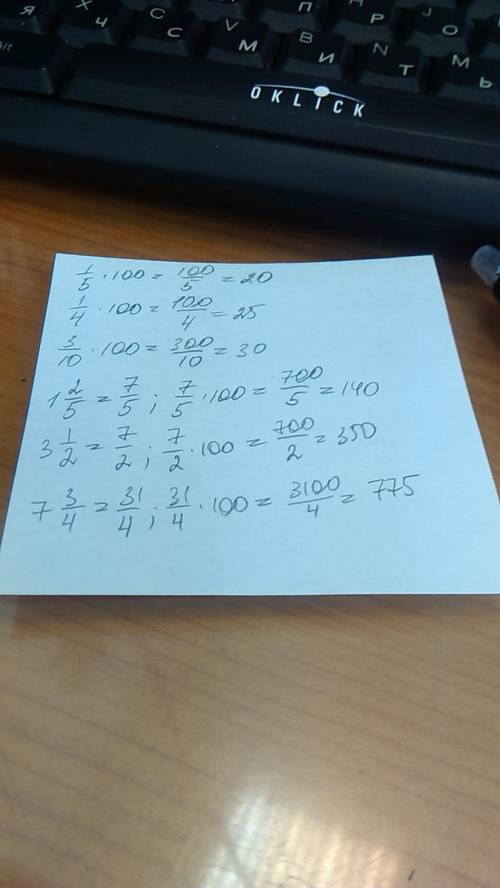 Я Ч С М И Т Ь
V B N M
П Р О
J
Alt
OKLICK
1/5 · 100 = 100/5 = 20
1/4 · 100 = 100/4 = 25
3/10 · 100 = 300/10 = 30
1 2/5 = 7/5 ; 7/5 · 100 = 700/5 = 140
3 1/2 = 7/2 ; 7/2 · 100 = 700/2 = 350
7 3/4 = 31/4 ; 31/4 · 100 = 3100/4 = 775